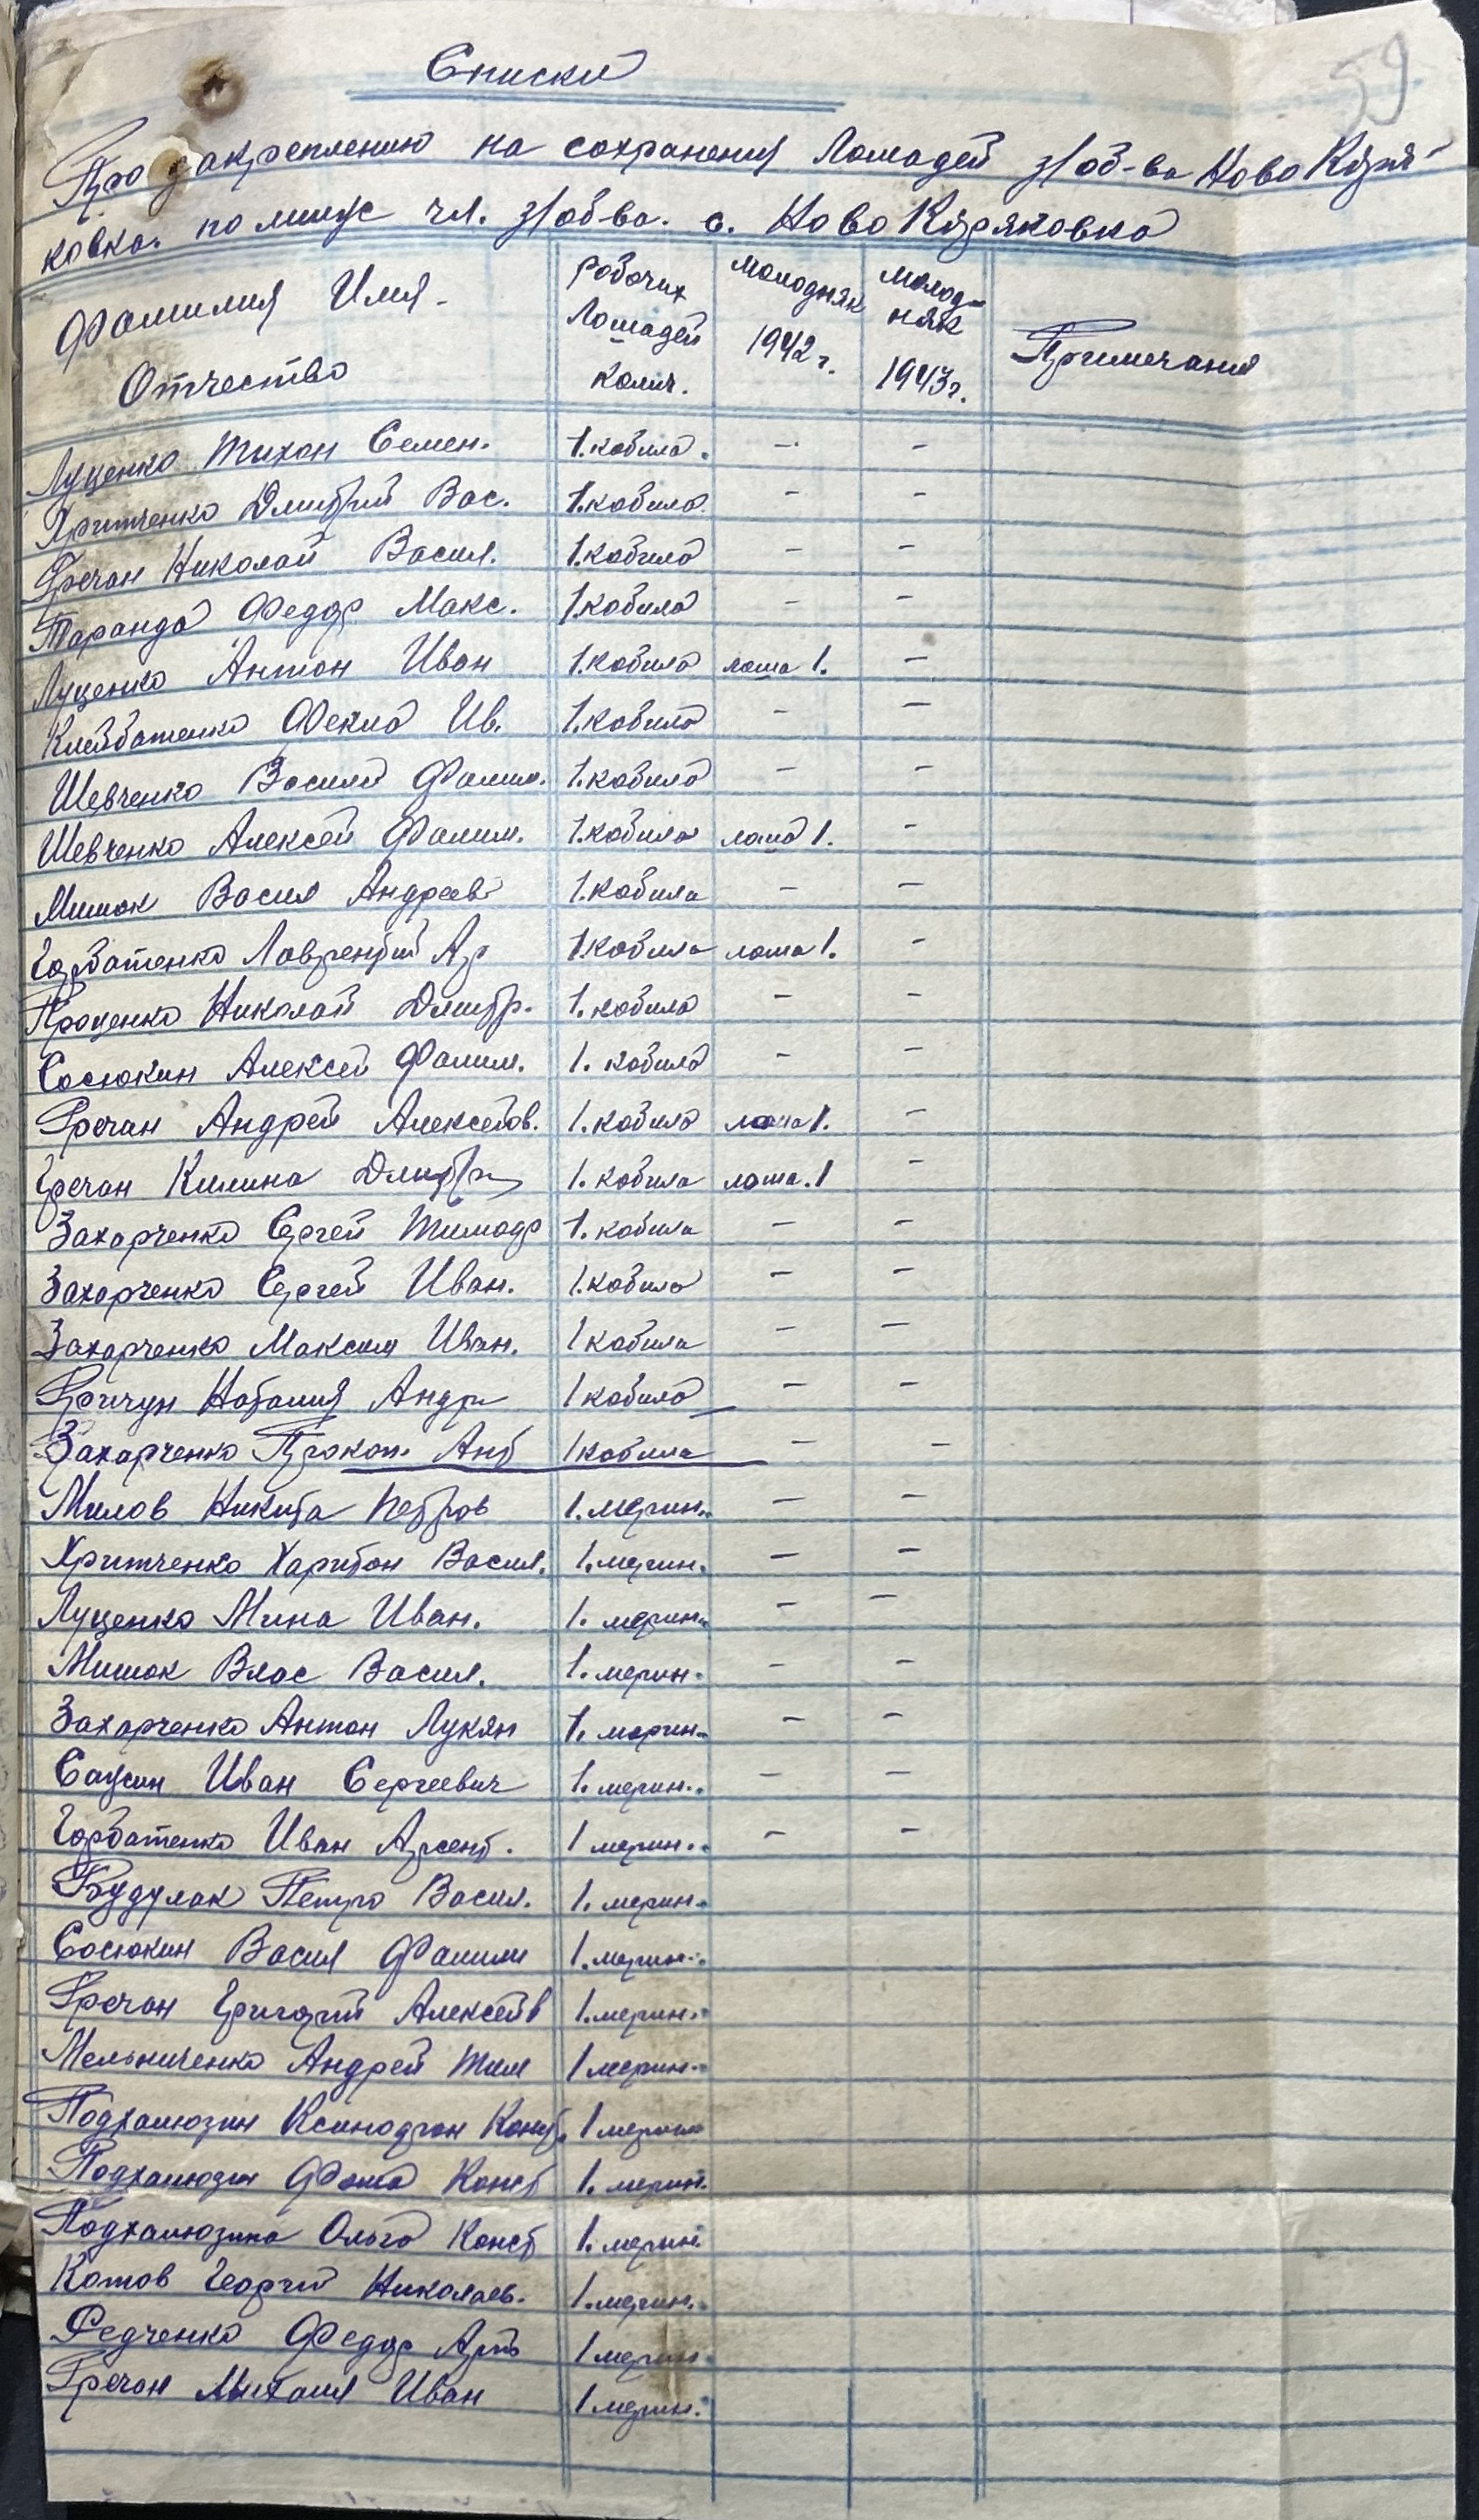 59
Списки
Про закреплению на сохранения Лошадей з/об-ва Ново Куря-
ковка. поминус чл. з/об-ва. с. Ново Куряковка
Фамилия Имя. Отчество | Робочих Лошадей колич. | молодняк 1942 г. | молод-няк 1943 г. | Примечания
Луценко Тихон Семен. 1. кобила. – –
Притченко Дмитрий Вас. 1. кобила – –
Гречан Николай Васил. 1. кобила – –
Таранда Федор Макс. 1. кобила – –
Луценко Антон Иван 1. кобила лоша 1. –
Фекла Ив. 1. кобила – –
Шевченко Василий Филим. 1. кобила – –
Шевченко Алексей Филим. 1. кобила лоша 1. –
Мишок Васил Андреев 1. кобила – –
Горбатенко Лаврентий Ар 1. кобила лоша 1. –
Проценко Николай Дмитр. 1. кобила – –
Сосюкин Алексей Филим. 1. кобила – –
Гречан Андрей Алексеев. 1. кобила лоша 1. –
Гречан Килина Дмитр 1. кобила лоша. 1 –
Захарченко Сергей Тимоф 1. кобила – –
Захарченко Сергей Иван. 1. кобила – –
Захарченко Максим Иван. 1 кобила – –
Гричун Наталия Андр 1 кобила – –
Захарченко Прокоп. Ант 1 кобила – –
Милов Никита Петров 1. мерин. – –
Притченко Харитон Васил. 1. мерин. – –
Луценко Мина Иван. 1. мерин. – –
Мишок Влас Васил. 1. мерин. – –
Захарченко Антон Лукян 1. мерин. – –
Саусин Иван Сергеевич 1. мерин. – –
Горбатенко Иван Арсент. 1 мерин. – –
Будулак Петро Васил. 1. мерин.
Сосюкин Васил Филим 1. мерин.
Гречан Григорий Алексеев 1. мерин.
Мельниченко Андрей Тим 1 мерин.
Подхалюзин Ксинофон Конст. 1 мерин
Подхалюзин Фома Конст 1. мерин.
Подхалюзина Ольга Конст 1. мерин.
Котов Георгий Николаев. 1. мерин.
Федченко Федор Арт 1 мерин.
Гречан Михаил Иван 1 мерин.